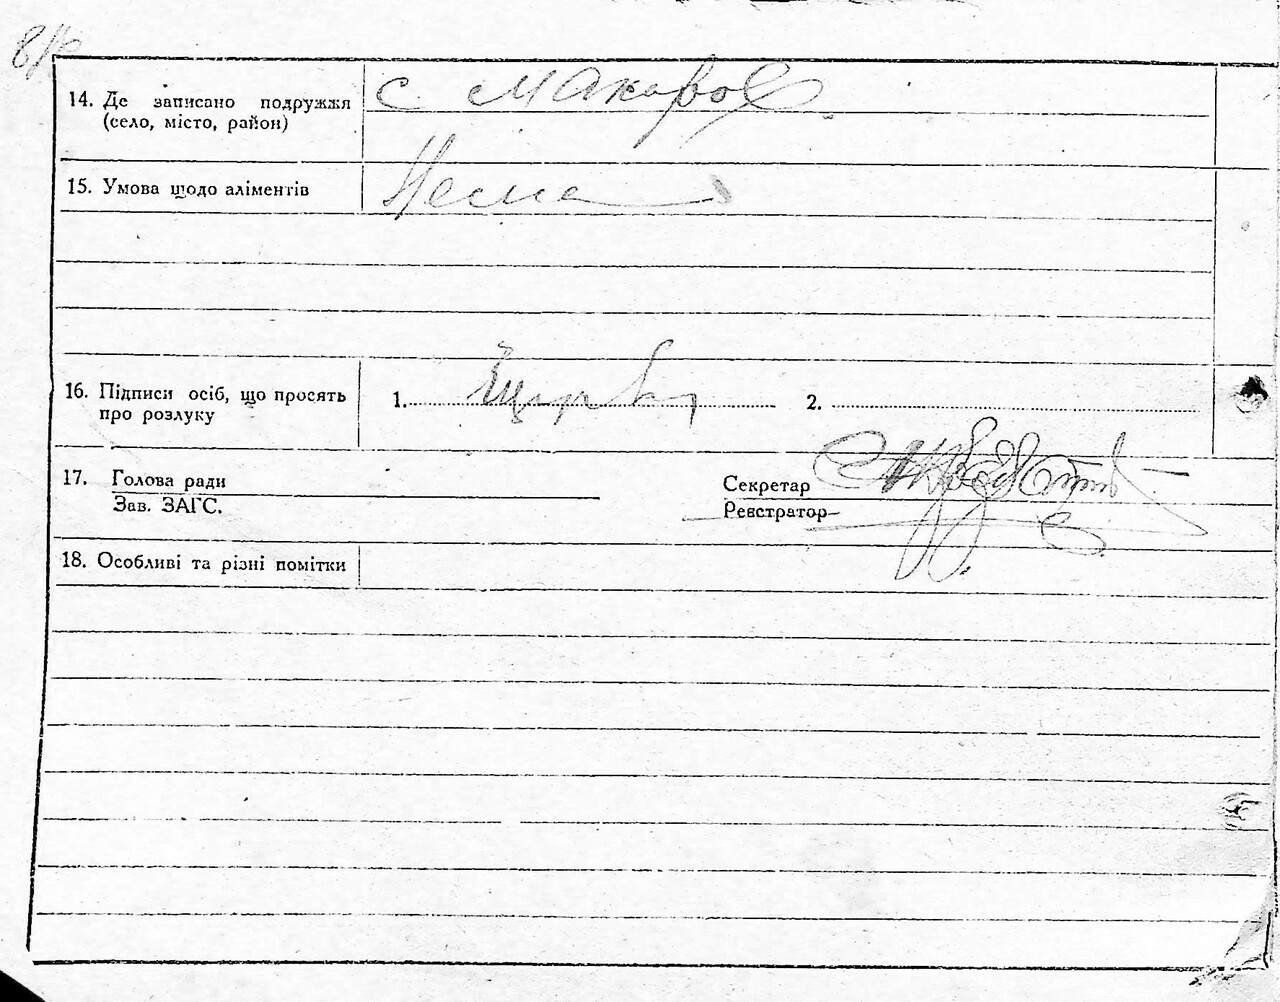 14. Де записано подружжя
(село, місто, район)
с Макаров
15. Умова щодо аліментів
Нема
16. Підписи осіб, що просять
про розлуку
1.
2.
17. Голова ради
Зав. ЗАГС.
Секретар
Реєстратор
18. Особливі та різні помітки